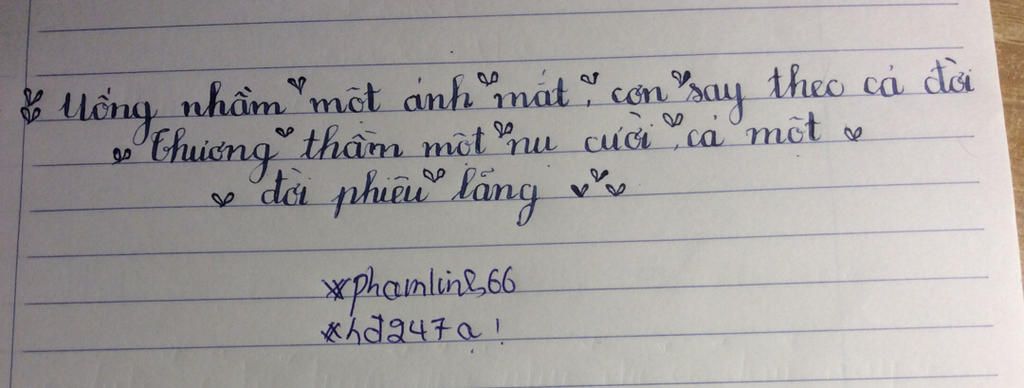 Uống nhầm một ánh mắt, cơn say theo cả đời
Thương thầm một nụ cười, cả một
đời phiêu lãng
*phamlin866
*hđ247a!